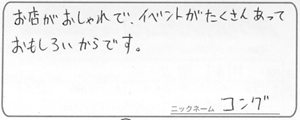 お店がおしゃれで、イベントがたくさんあって
おもしろいからです。
ニックネーム コング